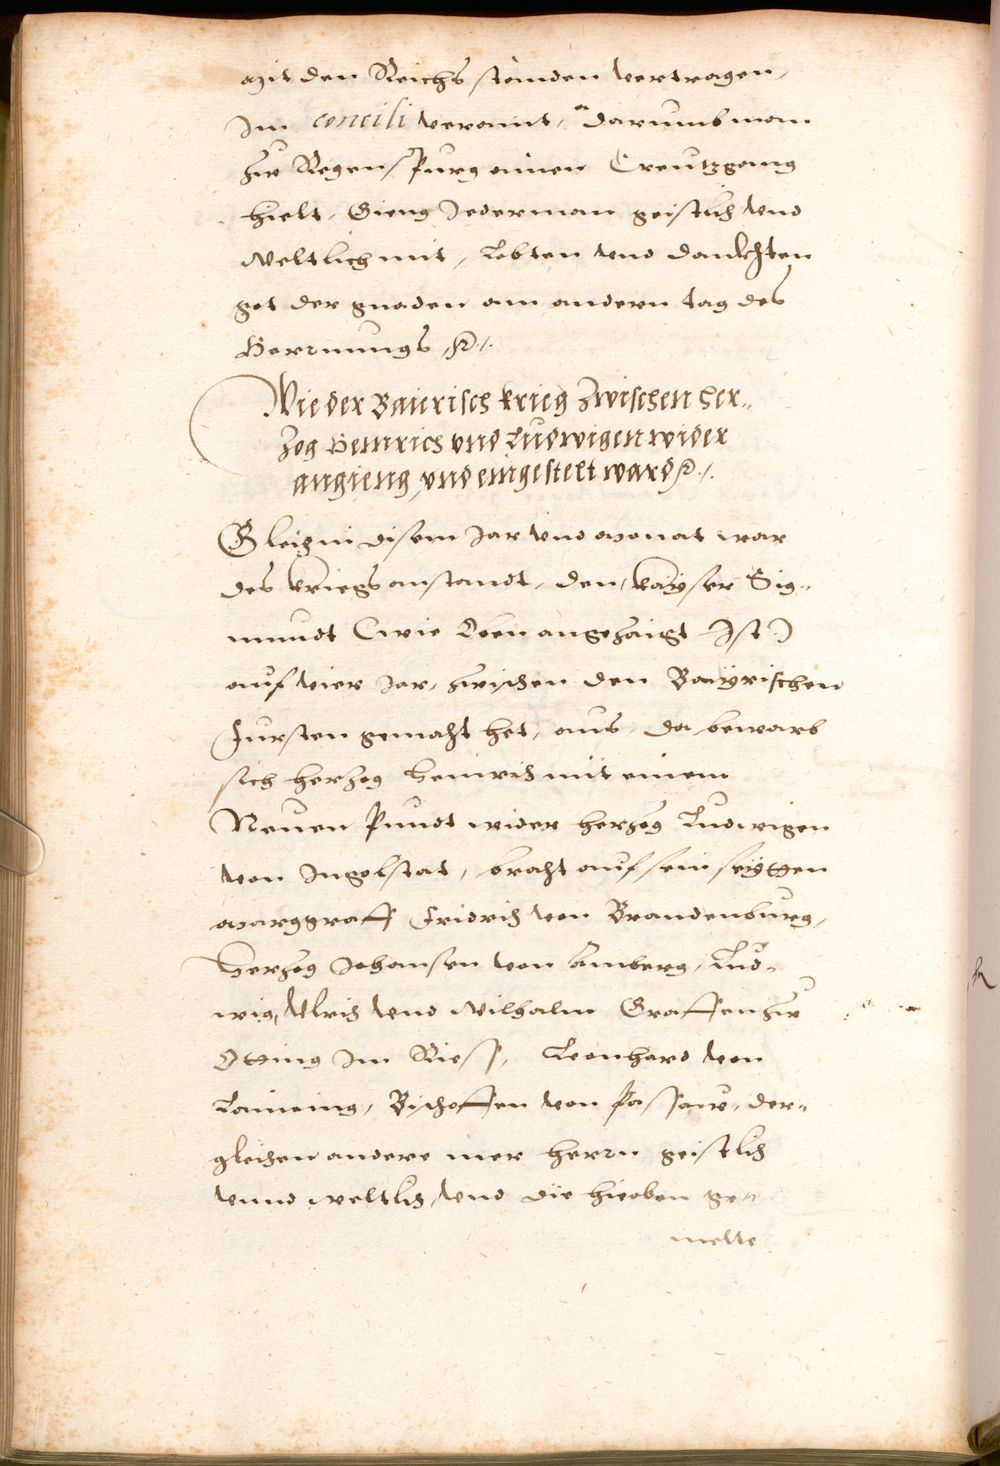 mit den Reichs stenden vertragen,
Im concili veraint, darumb man
zw Regenspurg ainen Creutzgang
hielt, Gieng Jederman geistlich vnd
Weltlich mit, Lobten vnd danckhten
got der gnaden am andern tag des
Hornungs ꝛc.
Wie der Baierisch krieg zwischen Her„
zog Heinrich vnd Ludwigen wider
angieng, vnd eingestelt ward ꝛc.
Gleich in disem Jar vnd monat war
des kriegs anstandt, den, kayser Sig„
mundt (wie oben angezaigt Ist)
auf vier Jar, zwischen den Bayrischen
Fursten gemacht het, aus, da bewarb
sich herzog Heinrich mit einem
Neuen Pundt wider herzog Ludwigen
von Ingolstat, bracht auf sein seytten
marggraff Fridrich von Brandenburg,
Herzog Johansen von Amberg, Lud„
wig, Vlrich vnd Wilhalm Graffen zw
Otting Im Riess, Leonhard von
Laiming, Bischoffen von Passaw, der„
gleichen andere mer herrn geistlich
vnnd weltlich, vnd die hieoben ge„
melte